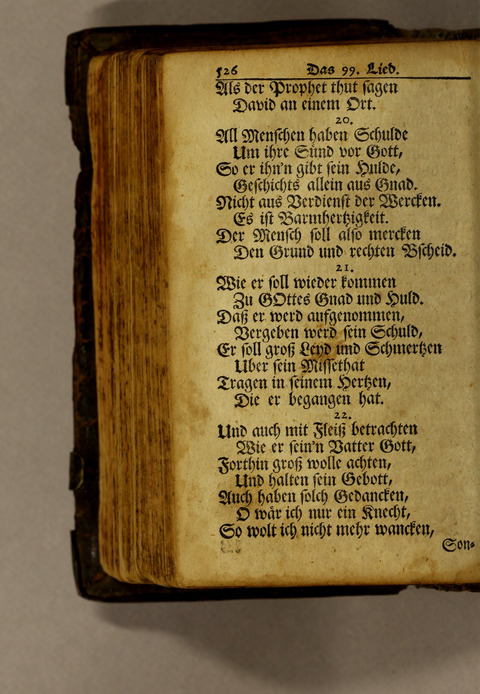 526 Das 99. Lied.
Als der Prophet thut sagen
David an einem Ort.
20.
All Menschen haben Schulde
Um ihre Sünd vor Gott,
So er ihn'n gibt sein Hulde,
Geschichts allein aus Gnad.
Nicht aus Verdienst der Wercken.
Es ist Barmhertzigkeit.
Der Mensch soll also mercken
Den Grund und rechten Bscheid.
21.
Wie er soll wieder kommen
Zu GOttes Gnad und Huld.
Daß er werd aufgenommen,
Vergeben werd sein Schuld,
Er soll groß Leyd und Schmertzen
Uber sein Missethat
Tragen in seinem Hertzen,
Die er begangen hat.
22.
Und auch mit Fleiß betrachten
Wie er sein'n Vatter Gott,
Forthin groß wolle achten,
Und halten sein Gebott,
Auch haben solch Gedancken,
O wär ich nur ein Knecht,
So wolt ich nicht mehr wancken,
Son-